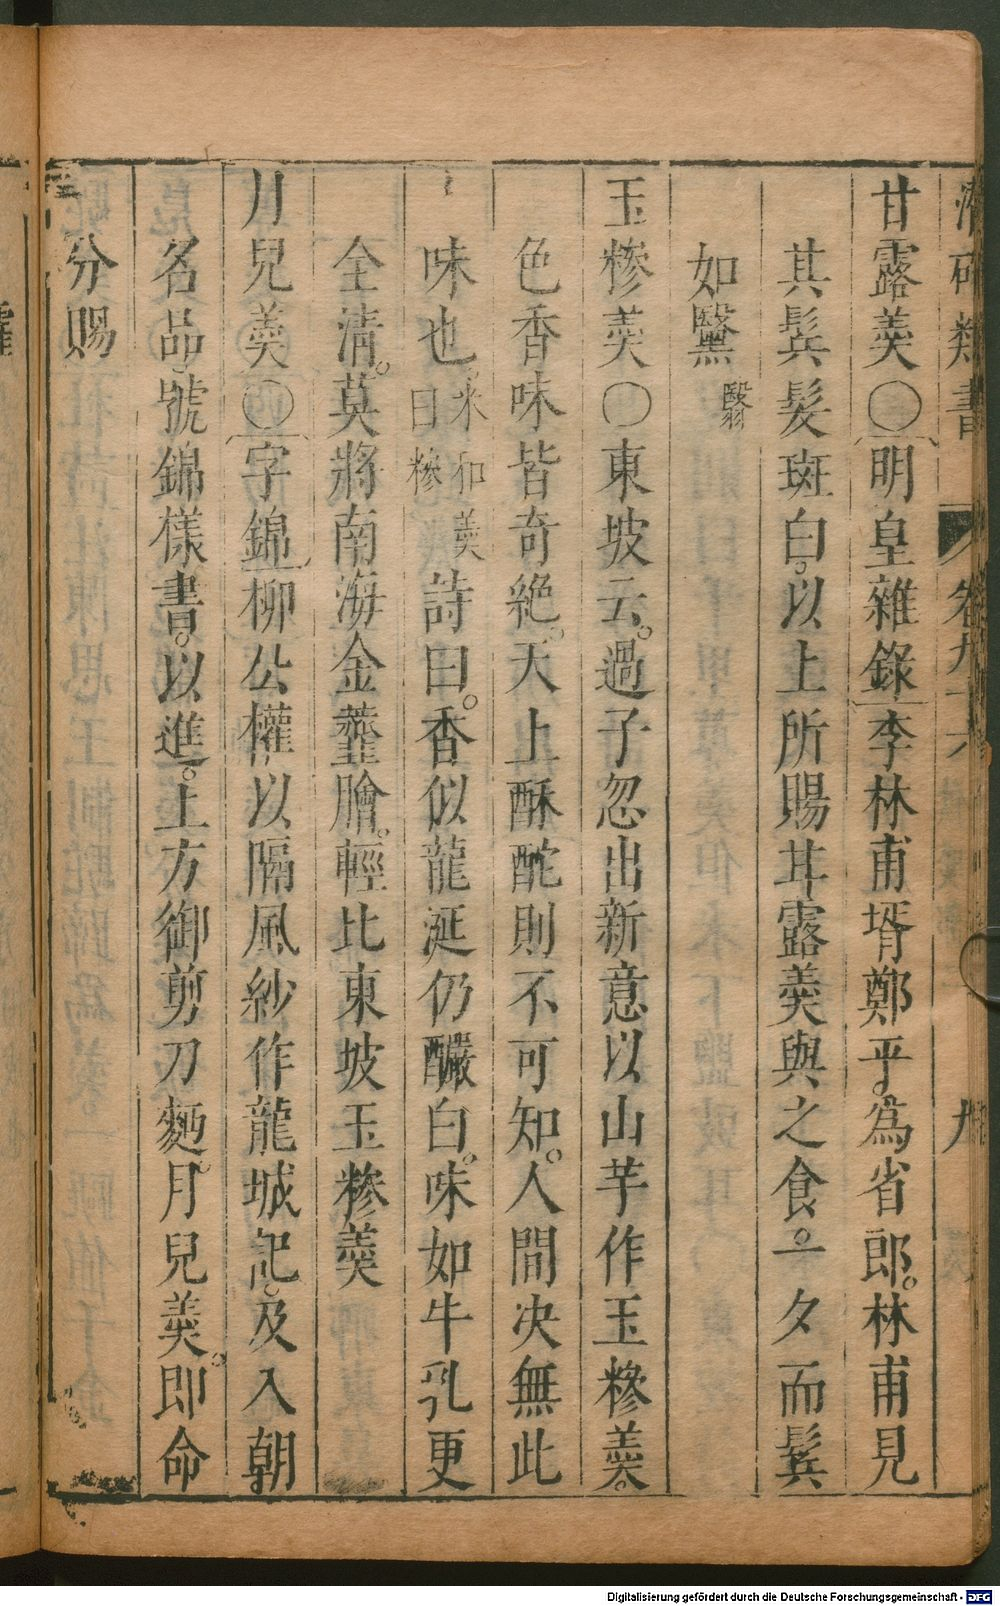 類書 卷九十六 九
甘露羮〇明皇雜錄李林甫壻鄭平爲省郎林甫見
其鬂髪斑白以上所賜甘露羮與之食一夕而鬂
如黳翳
玉糝羮〇東坡云過子忽出新意以山芋作玉糝羮
色香味皆奇絶天上酥酡則不可知人間决無此
味也米和羮曰糝詩曰香似龍涎仍釅白味如牛乳更
全淸莫將南海金虀膾輕比東坡玉糝羮
月兒羮〇字錦柳公權以隔風紗作龍城記及入朝
名品號錦樣書以進上方御剪刀麪月兒羮即命
分賜
Digitalisierung gefördert durch die Deutsche Forschungsgemeinschaft - DFG